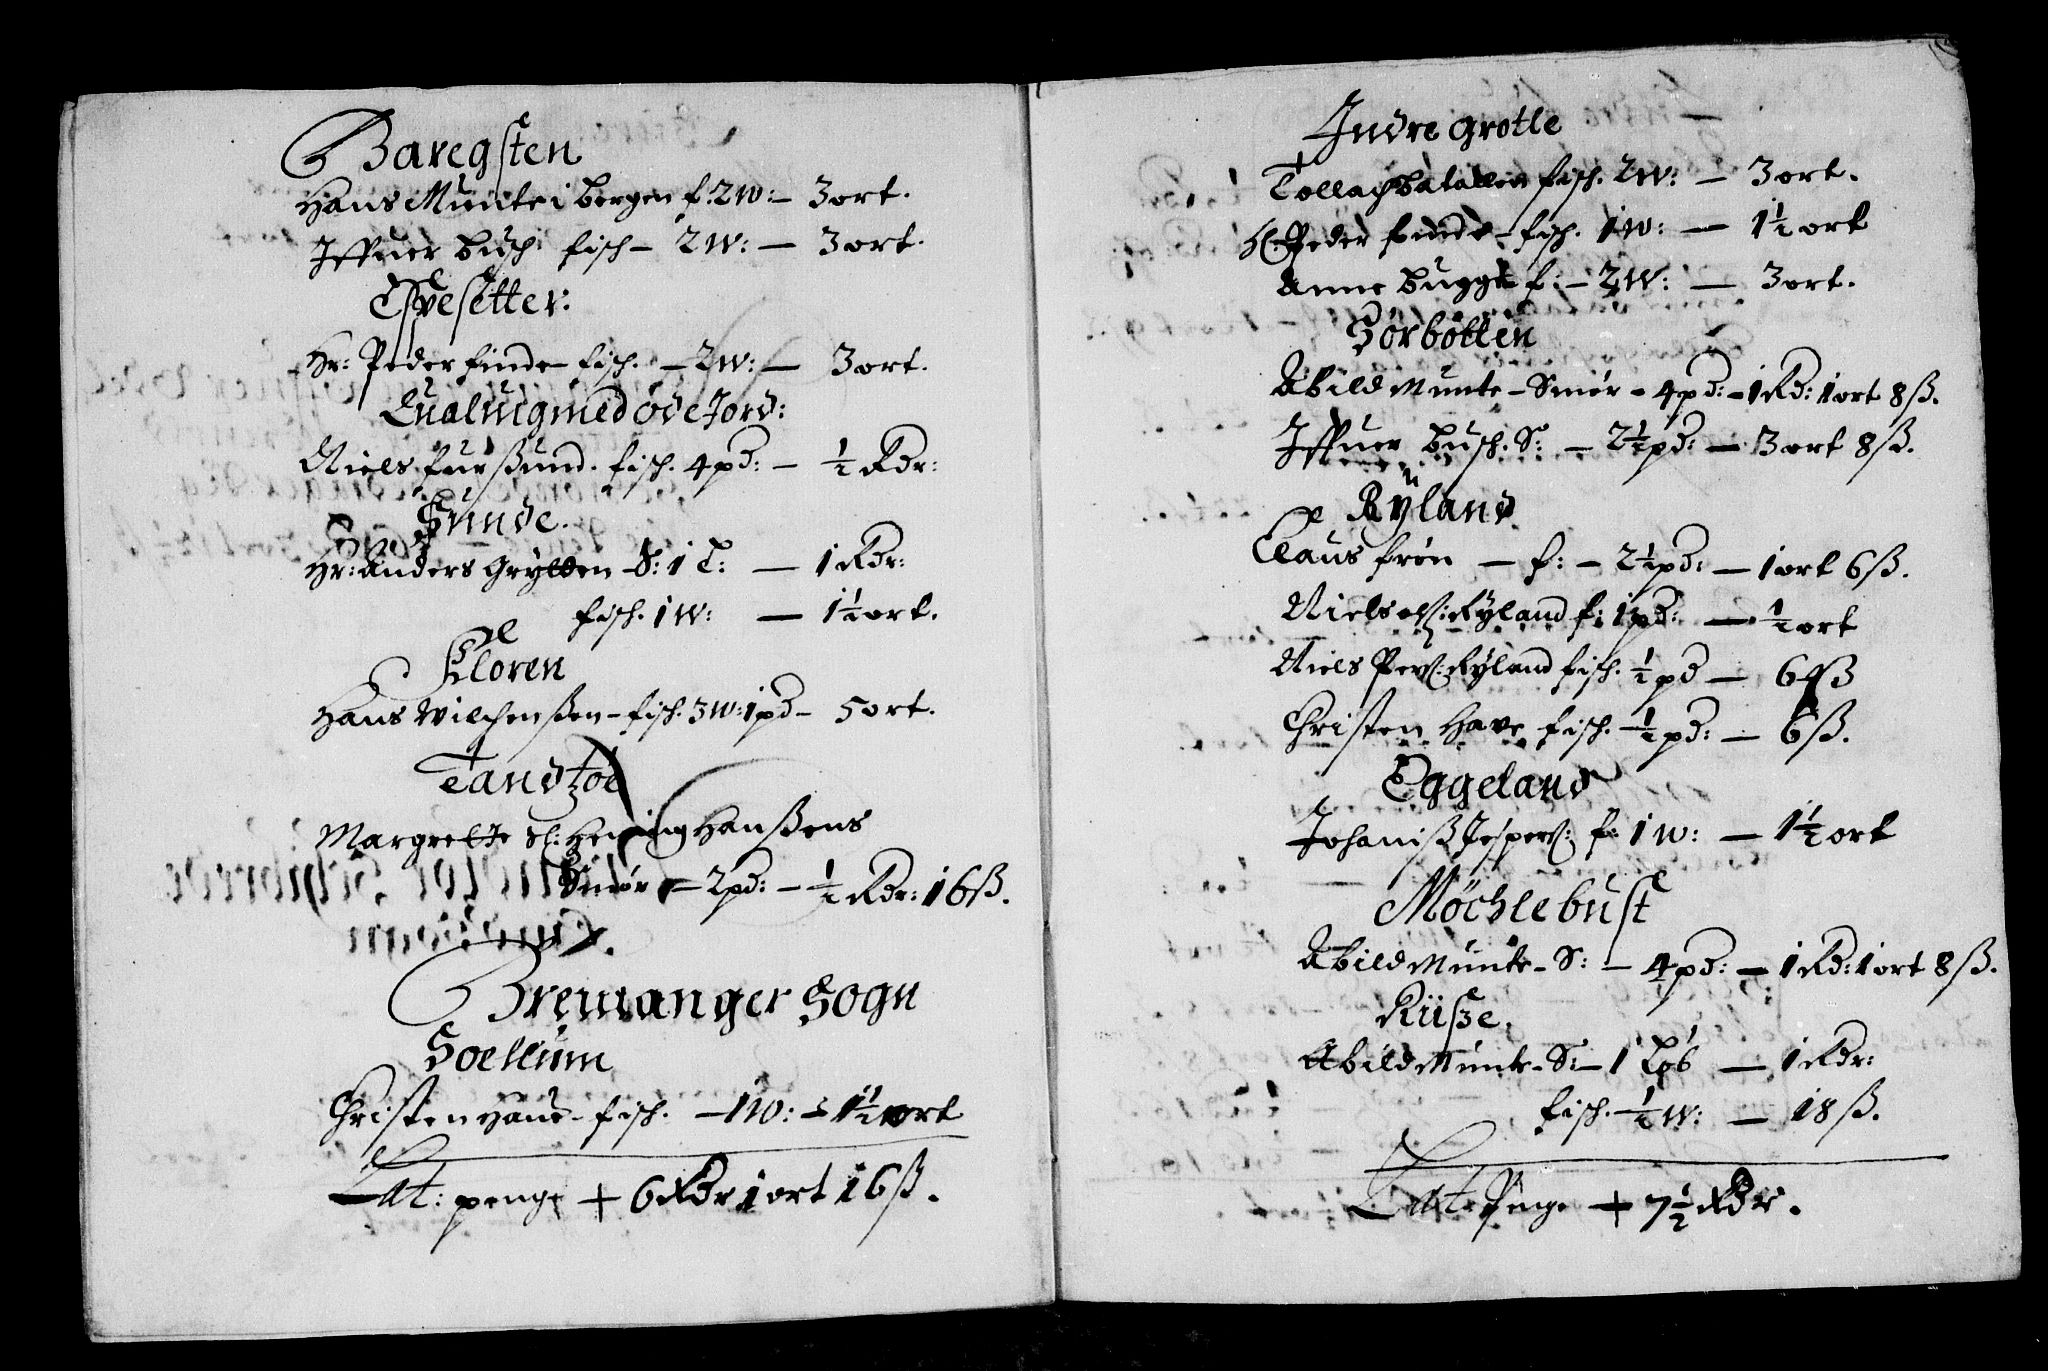 Baregsten
Hans Munte i bergen f. 2 W: – 3 ort.
Iffuer Busch fisch – 2 W: – 3 ort.
Espesetter:
Hr: Peder finde – fisch. – 2 W: – 3 ort.
Qualuig med øde Jord:
Niels furßund. fisch. 4 pd: – ½ Rdr:
Sunde.
Hr: Anders Grytten S: 1 L: – 1 Rdr:
fisch. 1 W: – 1½ ort.
Floren
Hans Wilchenßen – fisch. 3 W: 1 pd – 5 ort.
Margrette Sl: Hening Hanßens
Smør – 2 pd: – ½ Rdr: 16 ß.
Bremanger Sogn
Soellum
Christen Haue – fisch. – 1 W: – 1½ ort
Lat: penge + 6 Rdr 1 ort 16 ß.
Indre Grotle
fisch. 2 W: – 3 ort.
H. Peder finde – fisch. 1 W: – 1½ ort
Anne Bugge f: – 2 W: – 3 ort.
Sørbøtten
Abild Munte – Smør – 4 pd: – 1 Rd: 1 ort 8 ß.
Iffuer Busch. S: – 2½ pd: – 3 ort 8 ß.
Rÿland
Claus frøn – f: – 2½ pd: – 1 ort 6 ß.
Niels Olß: Rÿland f: 1 pd: – ½ ort
Niels Perß: Rÿland fisch. ½ pd – 6 ß
Christen Have fisch. ½ pd: – 6 ß.
Eggeland
Johaniß Jesperß: f: 1 W: – 1½ ort
Møchlebust
Abild Munte – S: – 4 pd: – 1 Rd: 1 ort 8 ß.
Riisze.
Abild Munte – S: – 1 Løb – 1 Rdr:
fisch. ½ W: – 18 ß.
Lat Penge + 7½ Rdr.